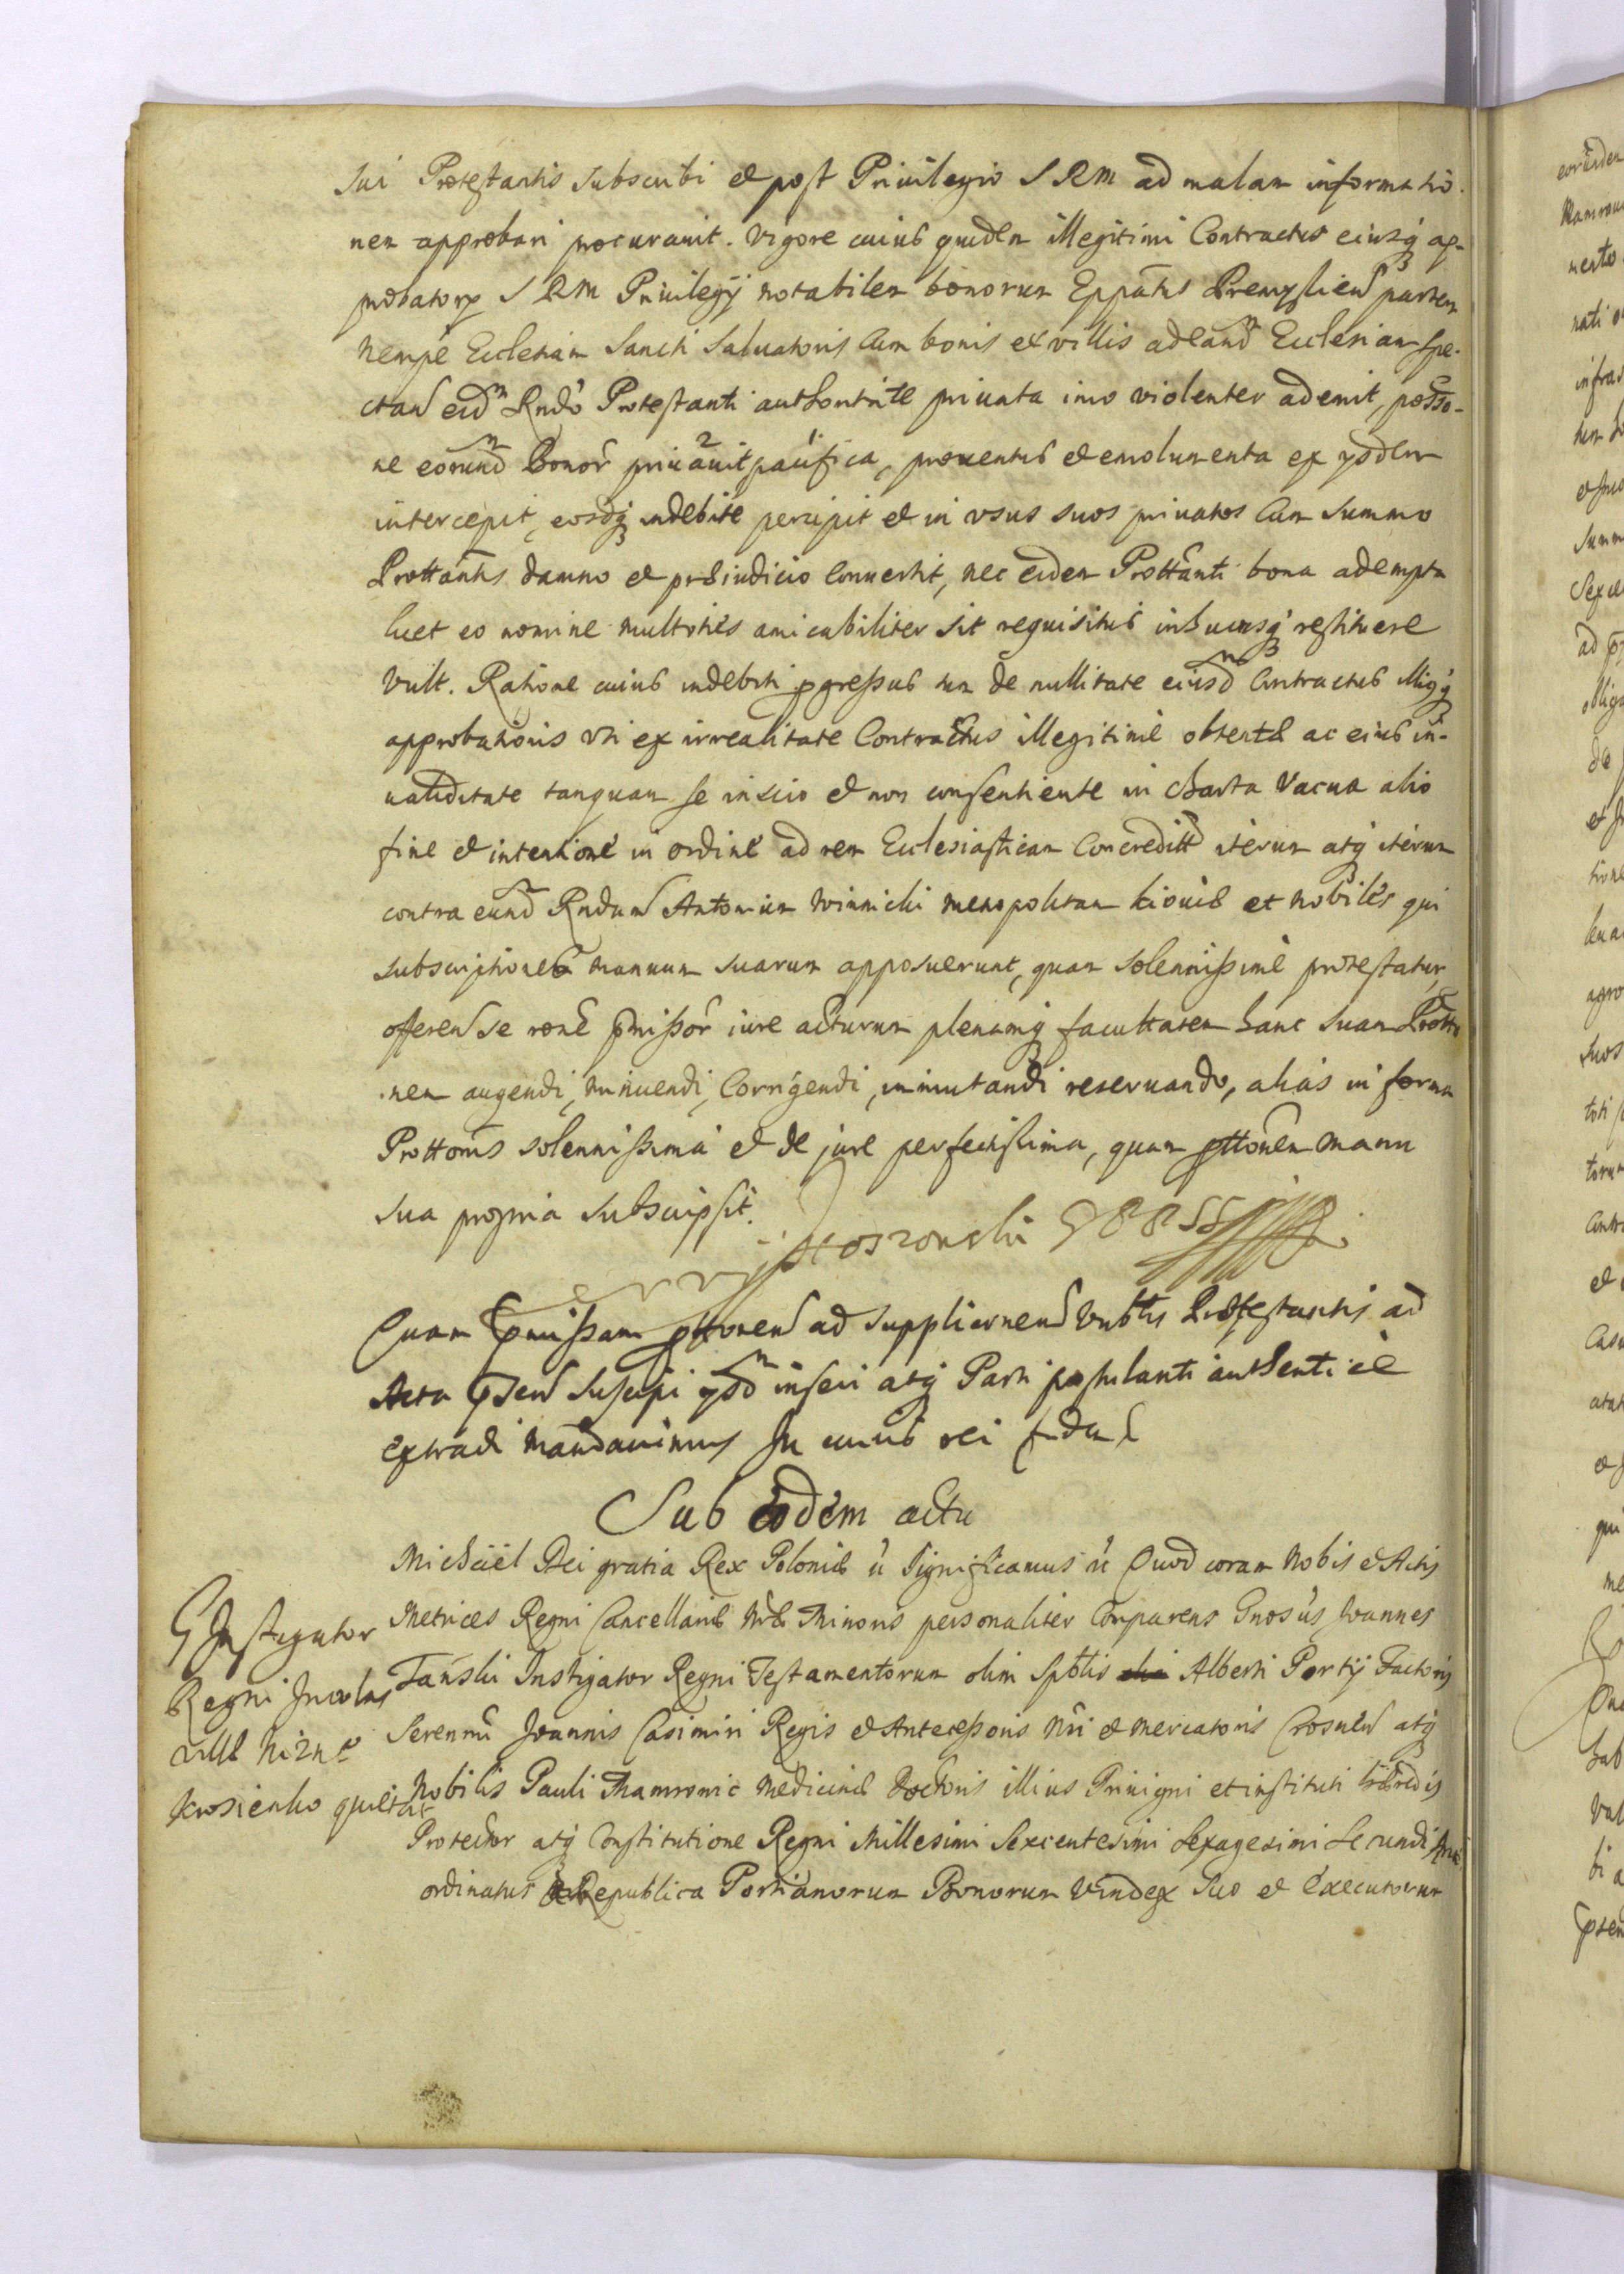 Sui Protestantis subscribi et post Privilegio S R M ad malam informatio-
nem approbari procuravit. Vigore cuius quidem illegitimi Contractus eiusq ap-
probatorÿ S R M Privilegÿ notabilem bonorum Eppatus Premyslien partem
nempe Ecclesiam Sancti Salvatoris cum bonis et villis ad eand Ecclesiam spe-
ctan eidm Rndo Protestanti authoritate privata imo violenter ademit, posso-
ne eorund Bonor privavit pacifica, proventus et emolumenta ex ysdem
intercepit, eosdq indebite percipit et in usus suos privatos cum summo
Prottantis damno et præiudicio convertit, nec eidem Prottanti bona adempta
licet eo nomine multoties amicabiliter sit requisitus inhucusq restituere
vult. Ratione cuius indebiti pgressus tum de nullitate eiusd Contractus illiusq
approbationis uti ex irrealitate Contractus illegitime obtentæ ac eius in-
validitate tanquam se inscio et non consentiente in charta vacua alio
fine et intentione in ordine ad rem Ecclesiasticam Concredit iterum atq iterum
contra eund Rndum Antonium Winnicki Metropolitam Kioviæ et nobiles qui
subscriptiones manuum suarum apposuerunt, quam solennissime protestatur,
offeren se rone pmissor iure acturum plenamq facultatem hanc suam Protto
nem augendi, minuendi, Corrigendi, immutandi reservando, alias in forma
Prottonis solennissima et de jure perfectissima, quam pttonem manu
sua propria subscripsit.
Quam pmissam pttonem ad supplicnem Vnblis Protestantis ad
Acta psen suscipi ysdm inseri atq Parti postulanti authentice
extradi mandavimus In cuius rei fidem
Sub eodem actu
Michaël Dei gratia Rex Poloniæ ñ Significamus ñ Quod coram Nobis et Actis
Metrices Regni Cancellariæ Nræ Minoris personaliter Comparens Gnosus Joannes
Tański Instigator Regni Testamentorum olim Spblis Alberti Portÿ Factoris
Serenmi Joannis Casimiri Regis et Antecessoris Nri et Mercatoris Crosnen atq
Nobilis Pauli Mamronic Medicinæ Doctoris illius Privigni et instituti hæredis
Protector atq Constitutione Regni Millesimi Sexcentesimi Sexagesimi Secundi Anni
ordinatus a Republica Portianorum Bonorum Vindex suo et Executorum
G Instigator
Regni Incolas
villæ Nizne
Krosienko quietat